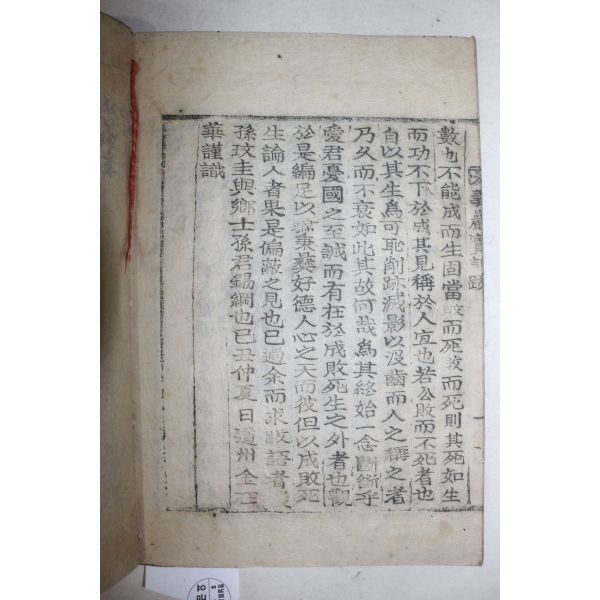 義巖實記跋
數也不能成而生固當敗而死敗而死則其死如生
而功不下於成其見稱於人宜也若公敗而不死者也
自以其生爲可恥削跡滅影以沒齒而人之稱之者
乃久而不衰如此其故何哉爲其終始一念斷斷乎
愛君憂國之至誠而有在於成敗死生之外者也觀
於是編足以驗秉彝好德人心之天而彼但以成敗死
生論人者果是偏蔽之見也已過余而求跋語者
孫玟圭與鄕士孫君錫綱也己丑仲夏日道州金
華謹識